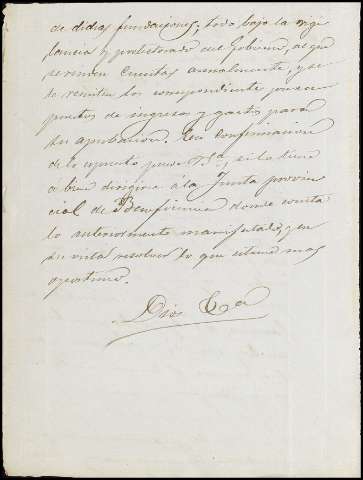 de dichas fundaciones, todo bajo la vigi
lancia y protectorado del Gobierno, al que
se rinden cuentas anualmente, y se
le remiten los correspondientes presu
puestos de ingresos y gastos para
su aprobacion. En confirmacion
de lo espuesto puede V.S., si lo tiene
a bien dirigirse á la Junta provin
cial de Beneficencia donde consta
lo anteriormente manifestado, y en
su vista resolver lo que estime mas
oportuno.
Dios &a